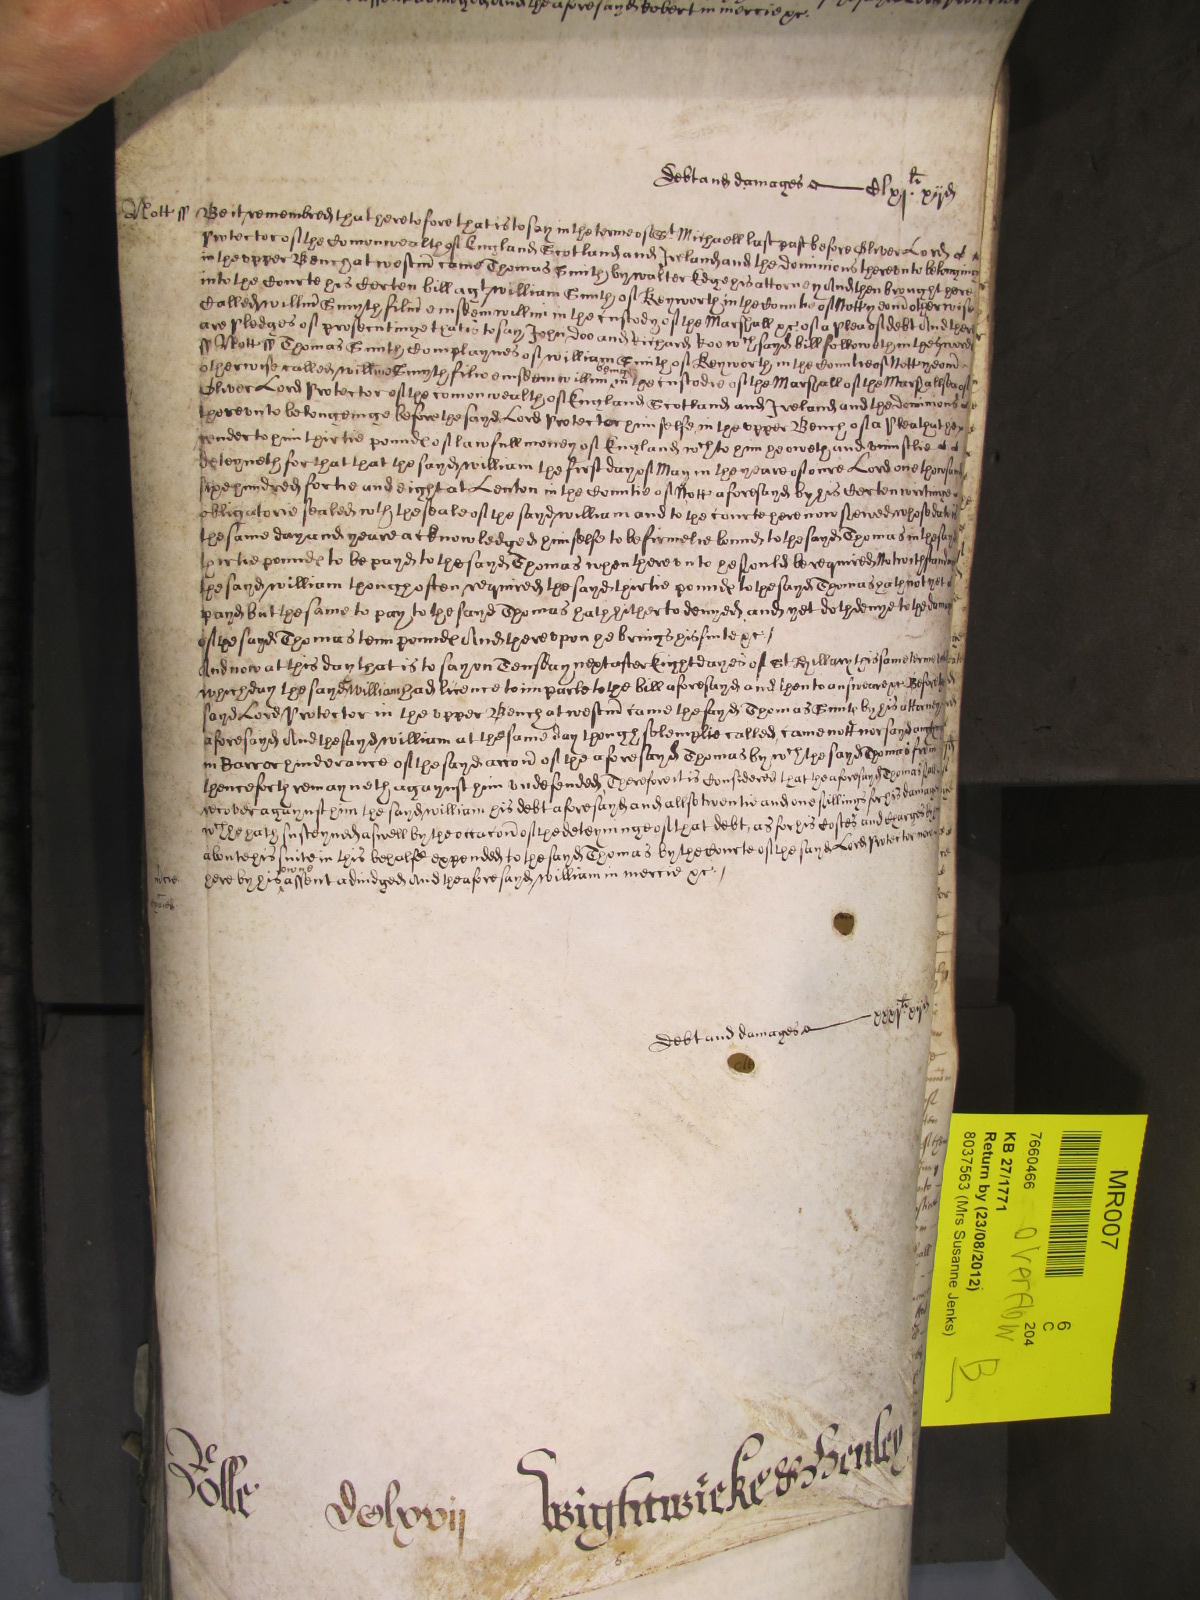 assent adiudged And the aforesayd Robert in mercie &c.
Debt and damages
Nott ss Be it remembred that heretofore that is to say in the terme of St Michaell last past before Oliver Lord
Protector of the Comonwealth of England Scotland and Ireland and the Dominions thereunto belonginge
in the upper Bench at westm came Thomas Smith by walter Edge his attorney And then brought here
into the Courte his Certen bill agt william Smith of Keyworth in the Countie of Nott yeom otherwise
Called willm Smyth filiu eiusdem willm in the custody of the Marshall &c of a plea of debt And there
are pledges of prosecutinge that is to say John Doo and Richard Roo wch sayd bill followeth in these words
ss Nott ss Thomas Smith Complaynes of william Smith of Keyworth in the Countie of Nott yeom
otherwise called willmo Smyth filio eiusdem willm beinge in the custodie of the Marshall of the Marshallsea of
Oliver Lord Protector of the comonwealth of England Scotland and Ireland and the Dominions
thereunto belongeinge before the sayd Lord Protector himselfe in the upper Bench of a plea that he
render to him thirtie pounds of lawfull money of England wch to him he oweth and uniustlie
deteyneth for that that the sayd william the first day of May in the yeare of oure Lord one thousand
sixe hundred fortie and eight at Lenton in the Countie of Nott aforesayd by his Certen writinge
obligatorie sealed wth the seale of the sayd william and to the courte here now shewed whose date is
the same day and yeare acknowledged himselfe to be firmelie bound to the sayd Thomas in the sayd
thirtie pounds to be payd to the sayd Thomas when thereunto he should be required Notwithstandinge
the sayd william though often required the sayd thirtie pounds to the sayd Thomas hath not yet
payd but the same to pay to the sayd Thomas hath hitherto denyed and yet doth denye to the damage
of the sayd Thomas tenn pounds And thereupon he brings his suite &c
And now at this day that is to say on Tensday next after Eight dayes of St Hillary this same terme untill
which day the sayd William had licence to imparle to the bill aforesayd and then to answeare &c Before the
sayd Lord Protector in the upper Bench at westm came the sayd Thomas Smith by his attorney
aforesayd And the sayd william at the same day though solemplie called came nott nor sayd anythinge
in Barr or hinderance of the sayd accon of the aforesayd Thomas by wch the sayd Thomas from
thenceforth remayneth agaynst him undefended Therefore it is Considered that the aforesayd Thomas shall
recover agaynst him the sayd william his debt aforesayd and allso twentie and one shillings for his damages
wch he hath susteyned aswell by the occacon of the deteyninge of that debt, as for his Costes and Charges by him
aboute his suite in this behalfe expended to the sayd Thomas by the Courte of the sayd Lord Protector now
here by his owne assent adiudged And the aforesayd william in mercie &c
Debt and damages xxxjli xijd
Rolle Wightwicke & Henley
6
MR007
6
C
204
7660466
overflow
B
KB 27/1771
Return by (23/08/2012)
8037563 (Mrs Susanne Jenks)